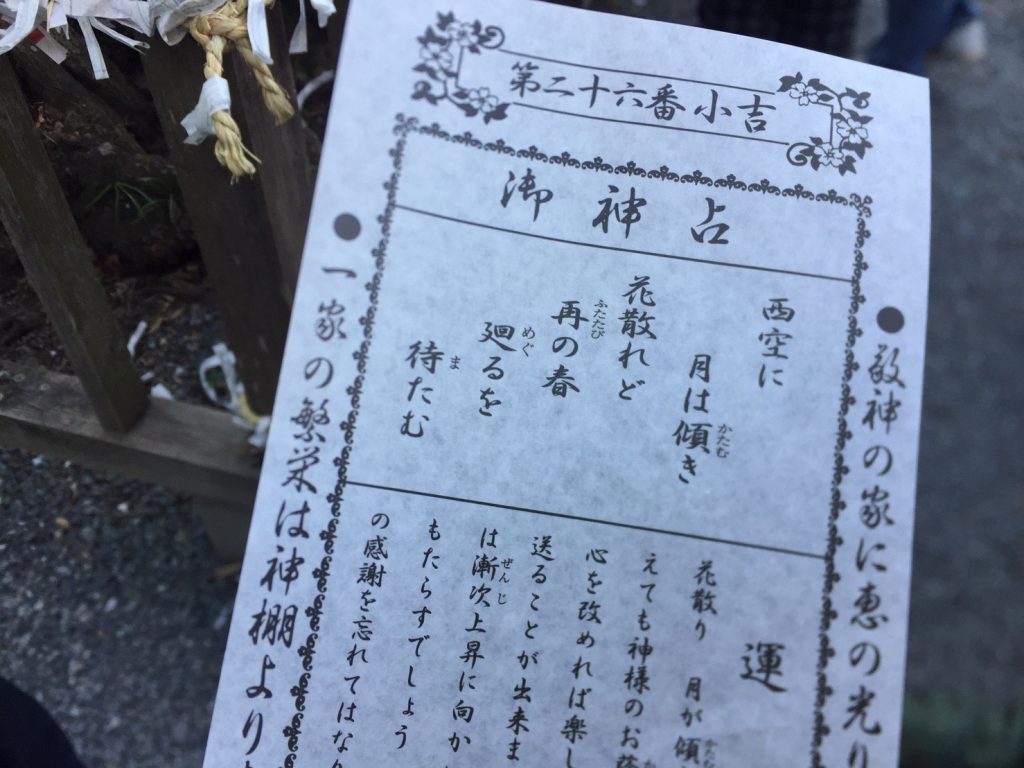 第二十六番 小吉
御神占
●敬神の家に恵の光り
西空に
月は傾き
かたむ
花散れど
再の春
ふたたび
廻るを
めぐ
待たむ
ま
運
花散り 月が傾
えても神様のお
心を改めれば楽し
送ることが出来ま
は漸次上昇に向か
ぜんじ
もたらすでしょう
の感謝を忘れてはな
●一家の繁栄は神棚より